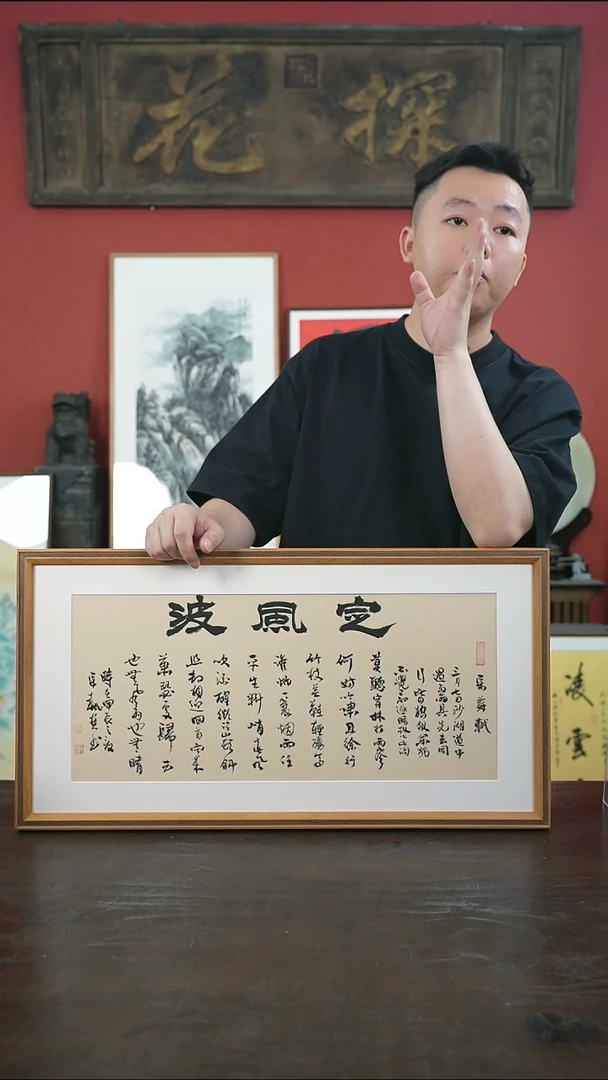 探花
定風波
宋蘇軾
三月七日沙湖道中
遇雨雨具先去同
行皆狼狽余獨
不覺已而遂晴故作此詞
莫聽穿林打葉聲
何妨吟嘯且徐行
竹杖芒鞋輕勝馬
誰怕一蓑烟雨任
平生料峭春風
吹酒醒微冷山頭斜
照却相迎回首向來
蕭瑟處歸去
也無風雨也無晴
時在甲辰之夏
凌雲